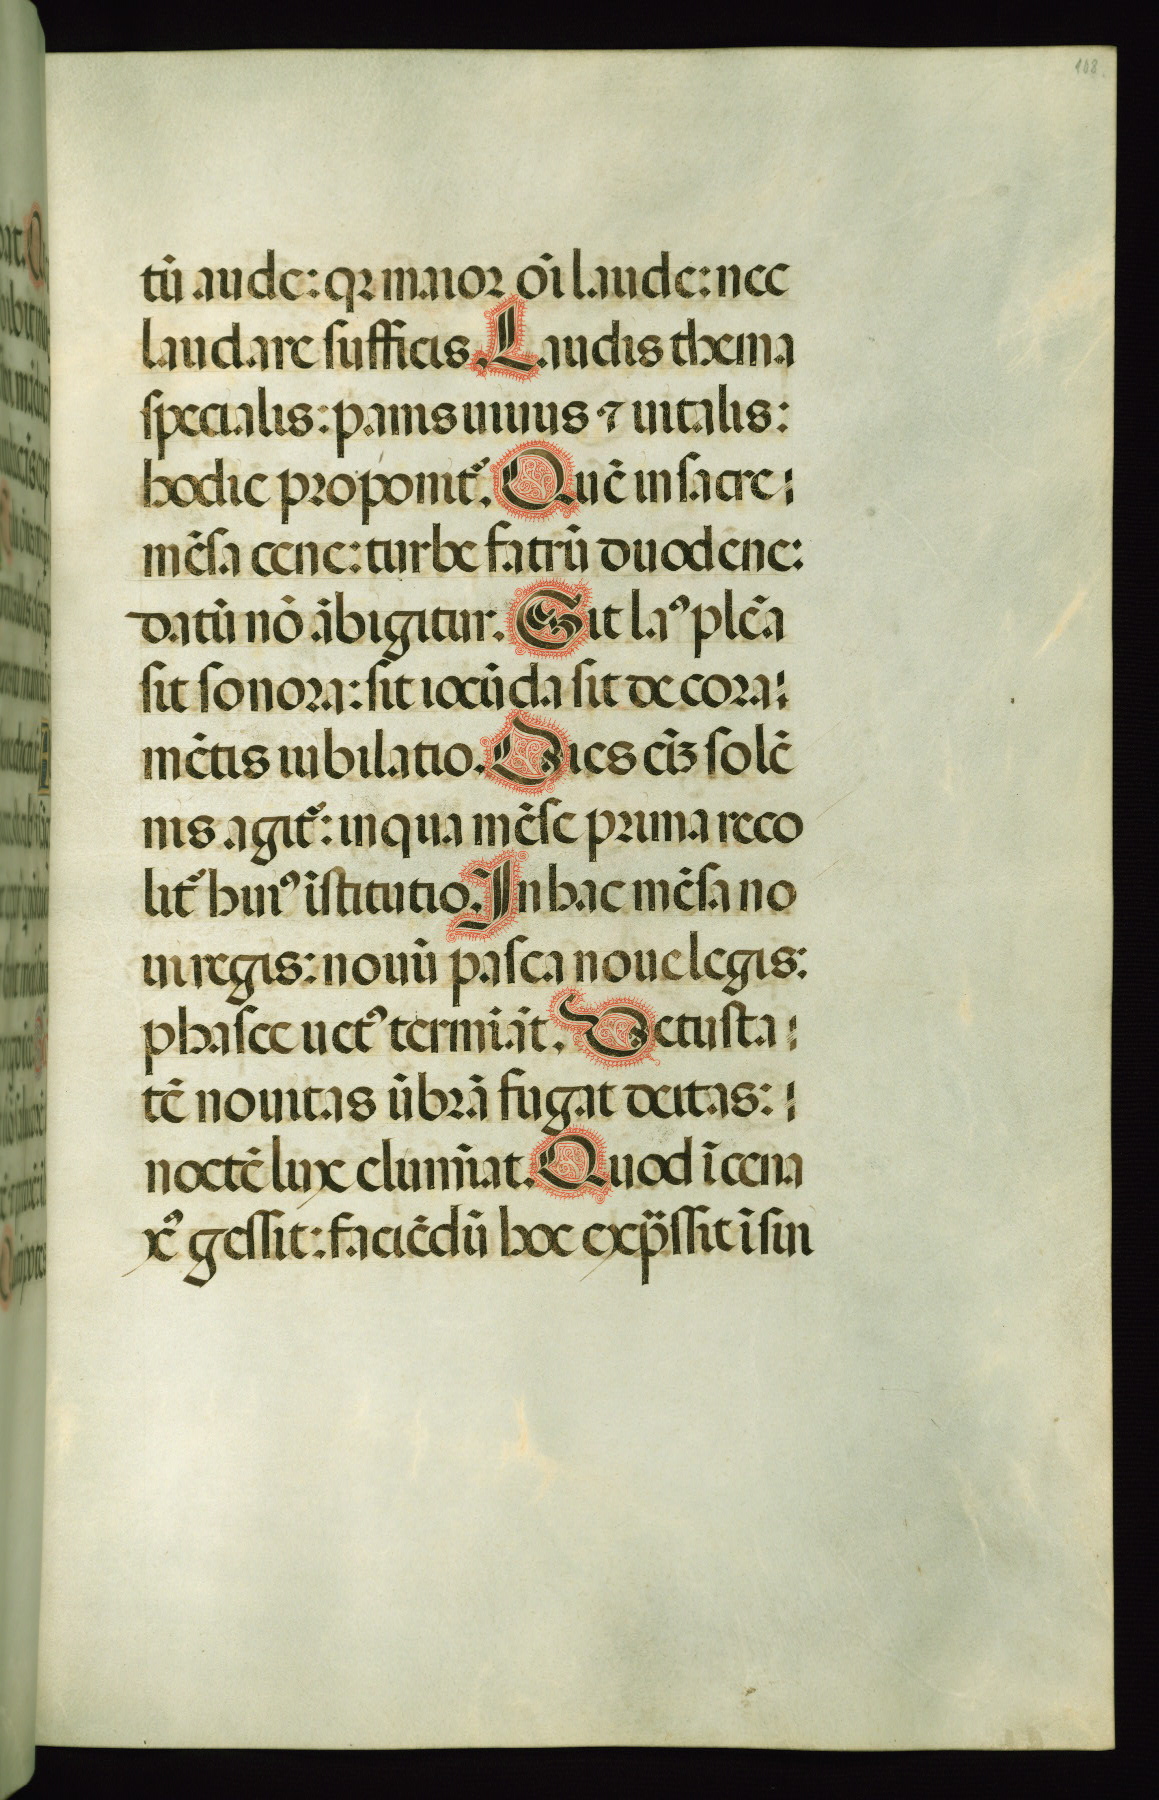 108.
tū aude: qꝛ maior oı̄ laude: nec
laudare sufficis. Laudis thema
specialis: panis uiuus ⁊ uitalis:
hodie proponit᷑. Quē in sacre
mēsa cene: turbe fatrū duodene:
datū nō ābigitur. Sit laꝰ plēa
sit sonora: sit iocūda sit decora
mētis iubilatio. Dies eı̄ꝫ solē
nis agit᷑: in qua mēse prima reco
lit᷑ huiꝰ ı̄stitutio. In hac mēsa no
ui regis: nouū pasca noue legis:
phasce uetꝰ termı̄āt. Uetusta
tē nouitas ūbrā fugat ueitas:
noctē lux elumı̄at. Quod ı̄ cena
xꝰ gessit: faciēdū hoc exp̄ssit ı̄ sui